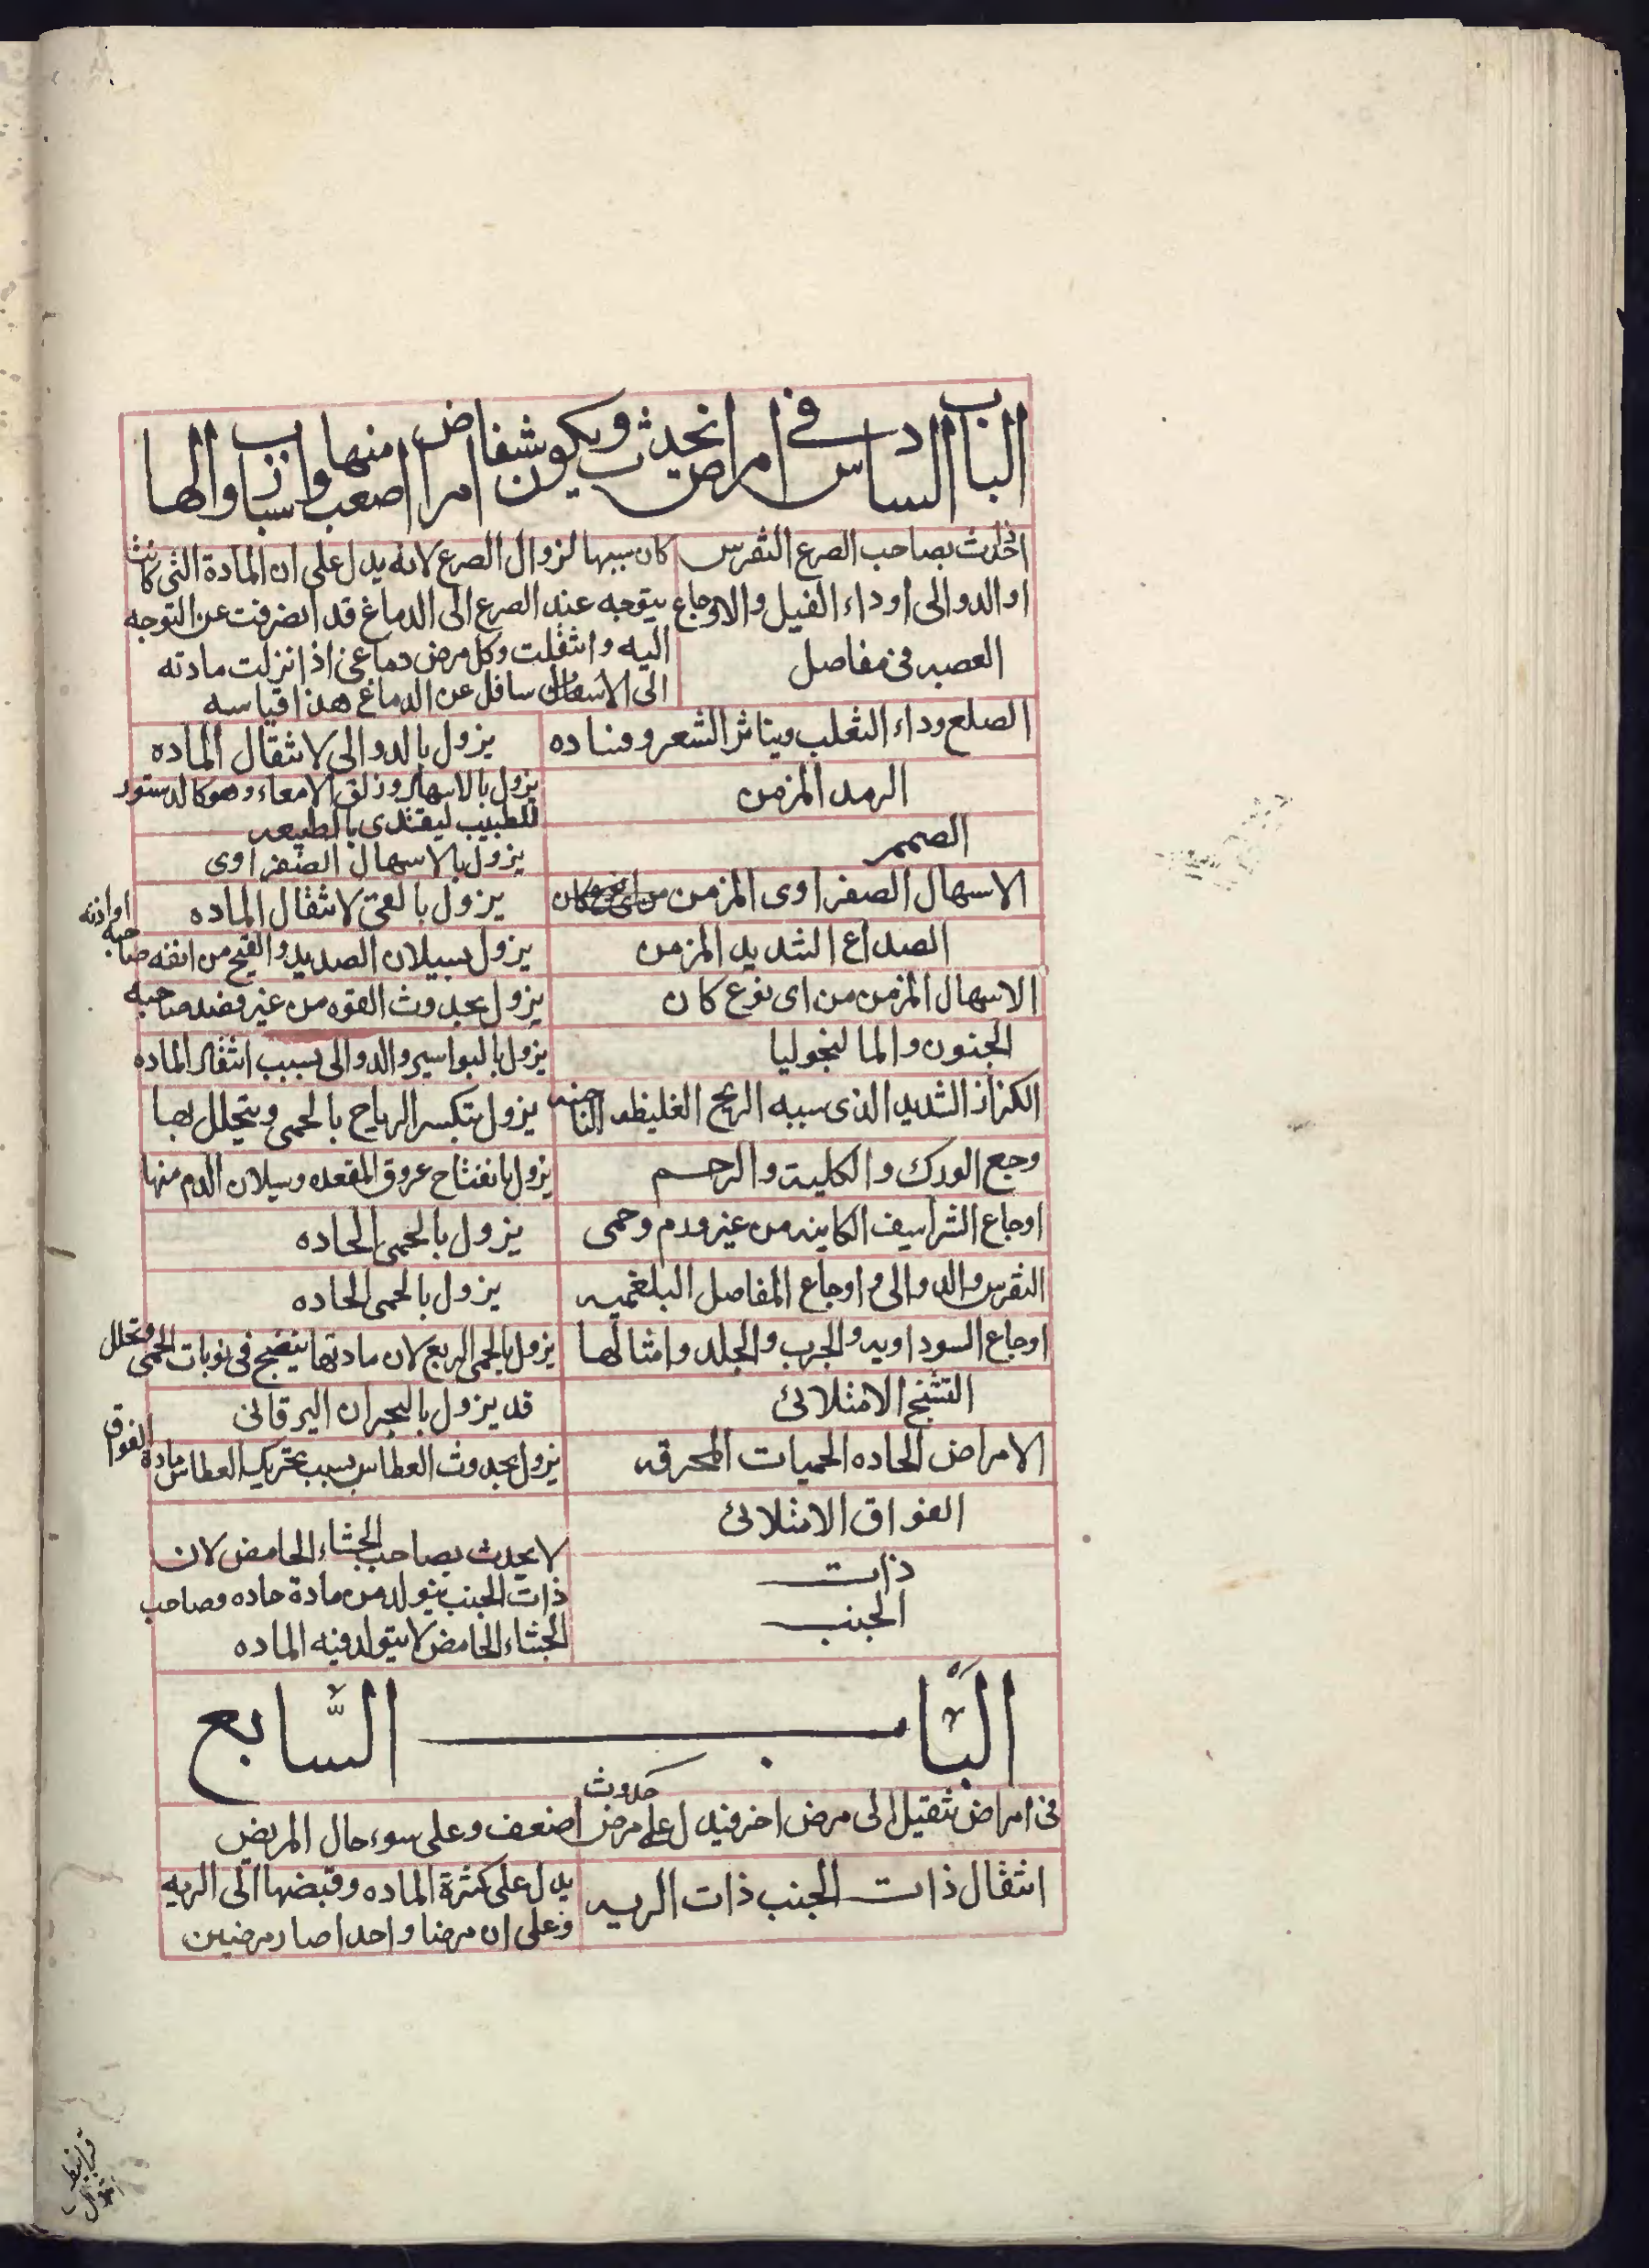 الباب السادس في امراض تحدث ويكون شفا امراض اصعب منها واسباب زوالها
اذا حدث بصاحب الصرع النقرس
او الدوالى او داء الفيل والاوجاع
العصبه فى مفاصل
كان سببها لزوال الصرع لانه يدل على ان المادة التى كانت
يتوجه عند الصرع الى الدماغ قد انصرفت عن التوجه
اليه وانتقلت وكل مرض دماغى اذا نزلت مادته
الى الاسفل سافل عن الدماغ هذا قياسه
الصلع وداء الثعلب ويناثر الشعر وفساده
يزول بالدوالى لانتقال الماده
الرمد المزمن
يزول بالاسهال وزلق الامعاء وهو كالدستور
للطبيب ليقتدى بالطبيعه
الصمم
يزول بالاسهال الصفراوى
الاسهال الصفراوى المزمن من اى نوع كان
يزول بالقئ لانتقال الماده
الصداع الشديد المزمن
يزول بسيلان الصديد والقيح من انفه صاحبه او اذنه
الاسهال المزمن من اى نوع كان
يزول بحدوث القوه من غير قصد صاحبه
الجنون والمالنخوليا
يزول بالبواسير والدوالى بسبب انتقال الماده
الكزاز الشديد الذى سببه الريح الغليظه
يزول بتكسر الرياح بالحمى ويتحلل بها
وجع الورك والكلية والرحم
يزول بانفتاح عروق المقعده وسيلان الدم منها
اوجاع الشراسيف الكاينه من غير ورم وحمى
يزول بالحمى الحاده
النقرس والدوالى واوجاع المفاصل البلغميه
يزول بالحمى الحاده
اوجاع السوداويه والجرب والجلد وامثالها
يزول بالحمى الربع لان مادتها ينضج فى نوبات الحمى وتحلل
التشنج الامتلائى
قد يزول بالبحران اليرقانى
الامراض الحاده الحميات المحرقه
يزول بحدوث العطاس بسبب تحريك العطاس مادة الفواق
الفواق الامتلائى
ذات
الجنب
لا يحدث بصاحب الجشاء الحامض لان
ذات الجنب يتولد من مادة حاده وصاحب
الجشاء الحامض لا يتولد فيه الماده
الباب السابع
فى امراض تنتقل الى مرض اخر فيدل على حدوث مرض اضعف وعلى سوء حال المريض
انتقال ذات الجنب ذات الريه
يدل على كثرة الماده وقبضها الى الريه
وعلى ان مرضا واحدا صار مرضين